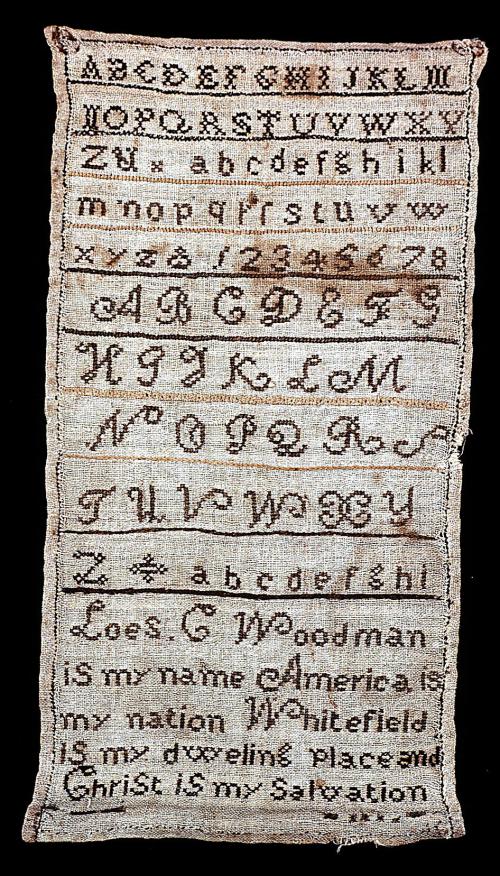 A B C D E F G H I J K L M
N O P Q R S T U V W X Y
Z & a b c d e f g h i k l
m n o p q r ſ s t u v w
x y z & 1 2 3 4 5 6 7 8
A B C D E F G
H I J K L M
N O P Q R S
T U V W X Y
Z a b c d e f g h i
Loes. C Woodman
is my name America is
my nation Whitefield
is my dweling place and
Christ is my Salvation